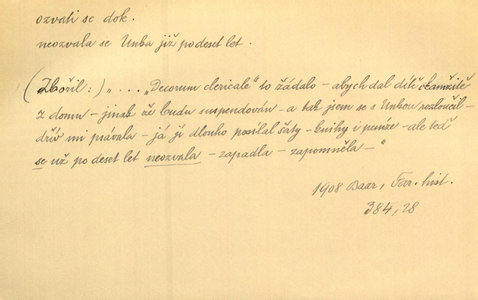 ozvati se dok.
neozvala se Unba již po deset let.
(Zbořil:) „ .... „Decorum clericale" to žádalo – abych dal dítě okamžitě
z domu – jinak že budu suspendován – a tak jsem se s Unbou rozloučil –
dřív mi psávala – já jí dlouho posílal šaty – knihy i peníze – ale teď
se už po deset let neozvala – zapadla – zapomněla – "
1908 Baar, Far. hist.
384, 28